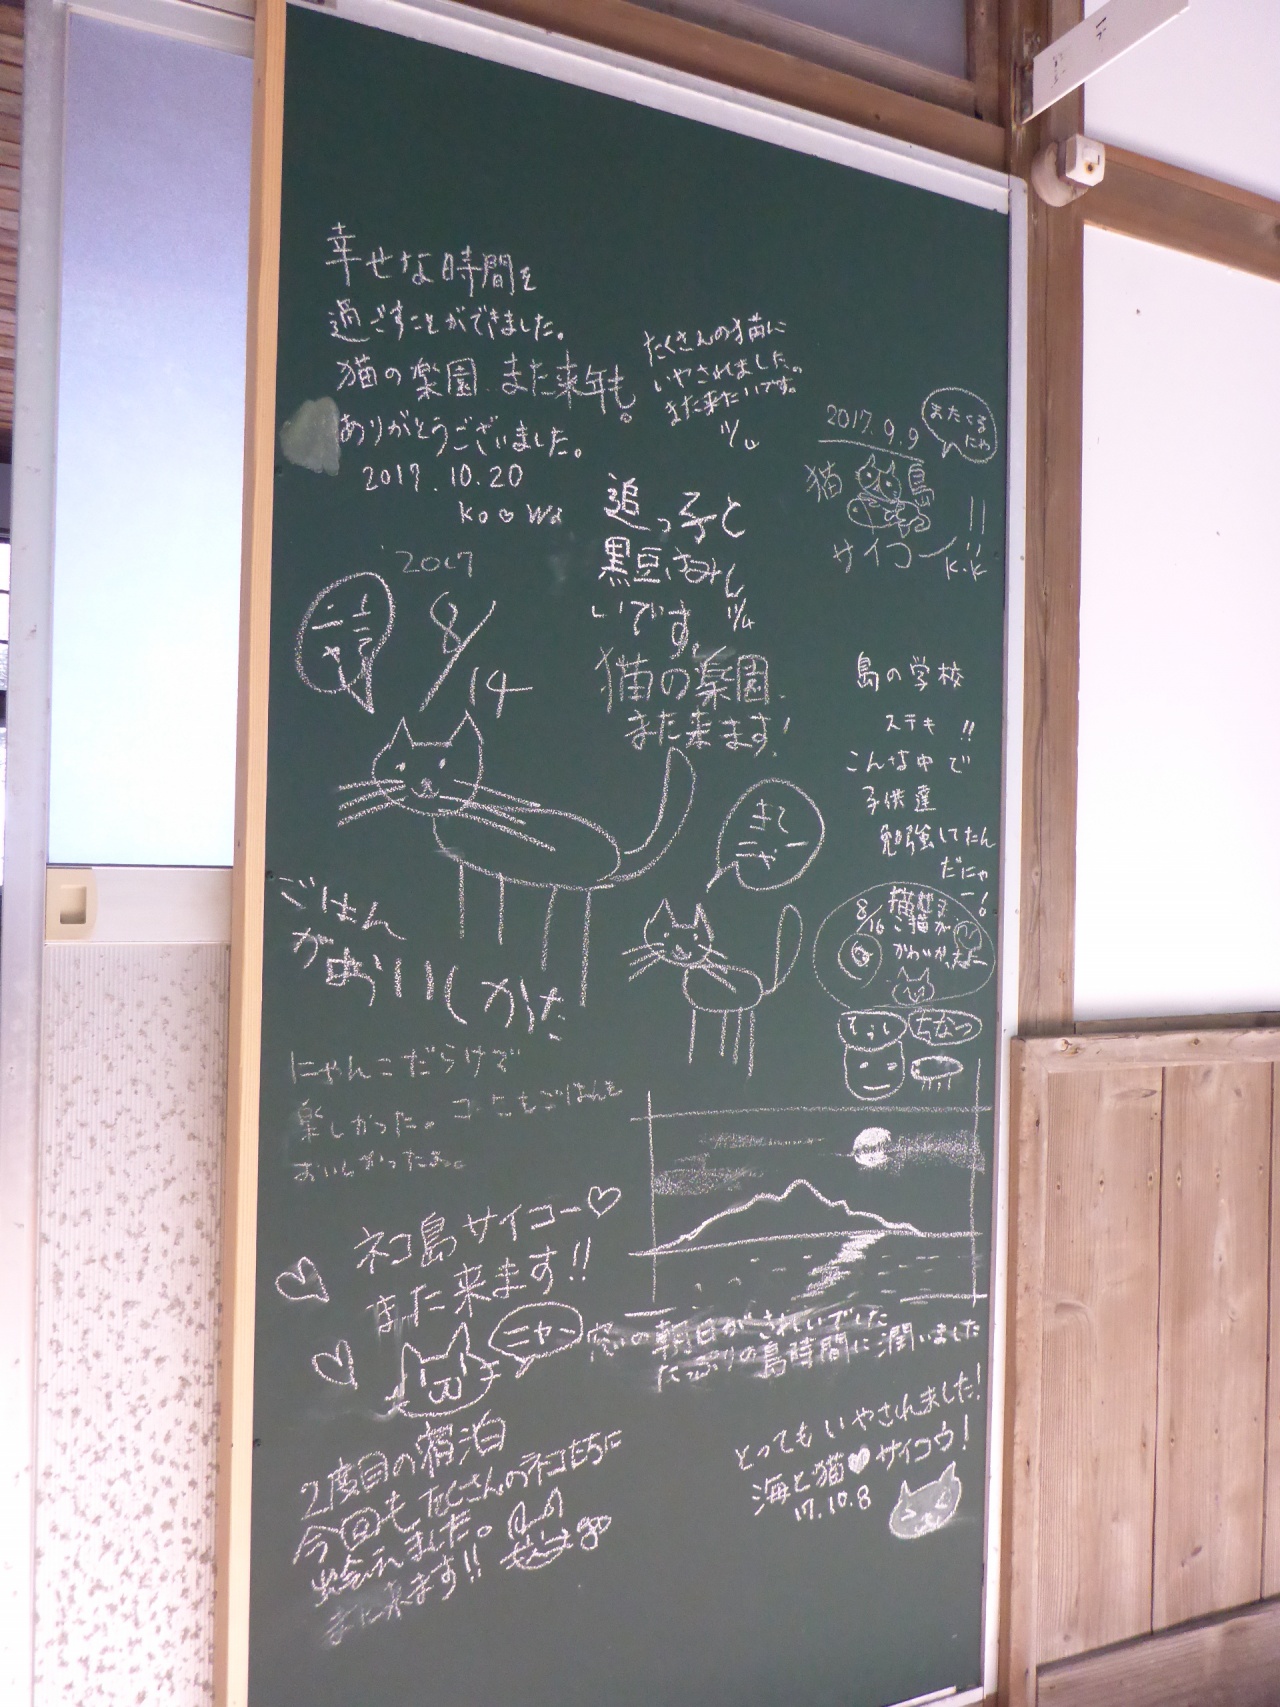 幸せな時間を
過ごすことができました。
猫の楽園 また来年も。
ありがとうございました。
2017.10.20
Ko♡Wa
たくさんの猫に
いやされました。
また来たいです。
2017.9.9
またくる
にゃ
猫島
サイコー!!
K.K
追っ子と
黒豆
いです。
猫の楽園
また来ます!
2017
8/14
島の学校
ステキ!!
こんな中で
子供達
勉強してたん
だにゃ
ー!
きてー
ニャー
ごはん
がおいしかた
8/16
ちなつ
にゃんこだらけで
楽しかった。 ごはんも
おいしかったよ。
ネコ島サイコー♡
また来ます!!
ニャン
窓の朝日がきれいでした
たっぷりの島時間に潤いました
2度目の宿泊
今回も、たくさんのネコたちに
出会えました。
また来ます!!
とってもいやされました!
海と猫♥サイコウ!
17.10.8